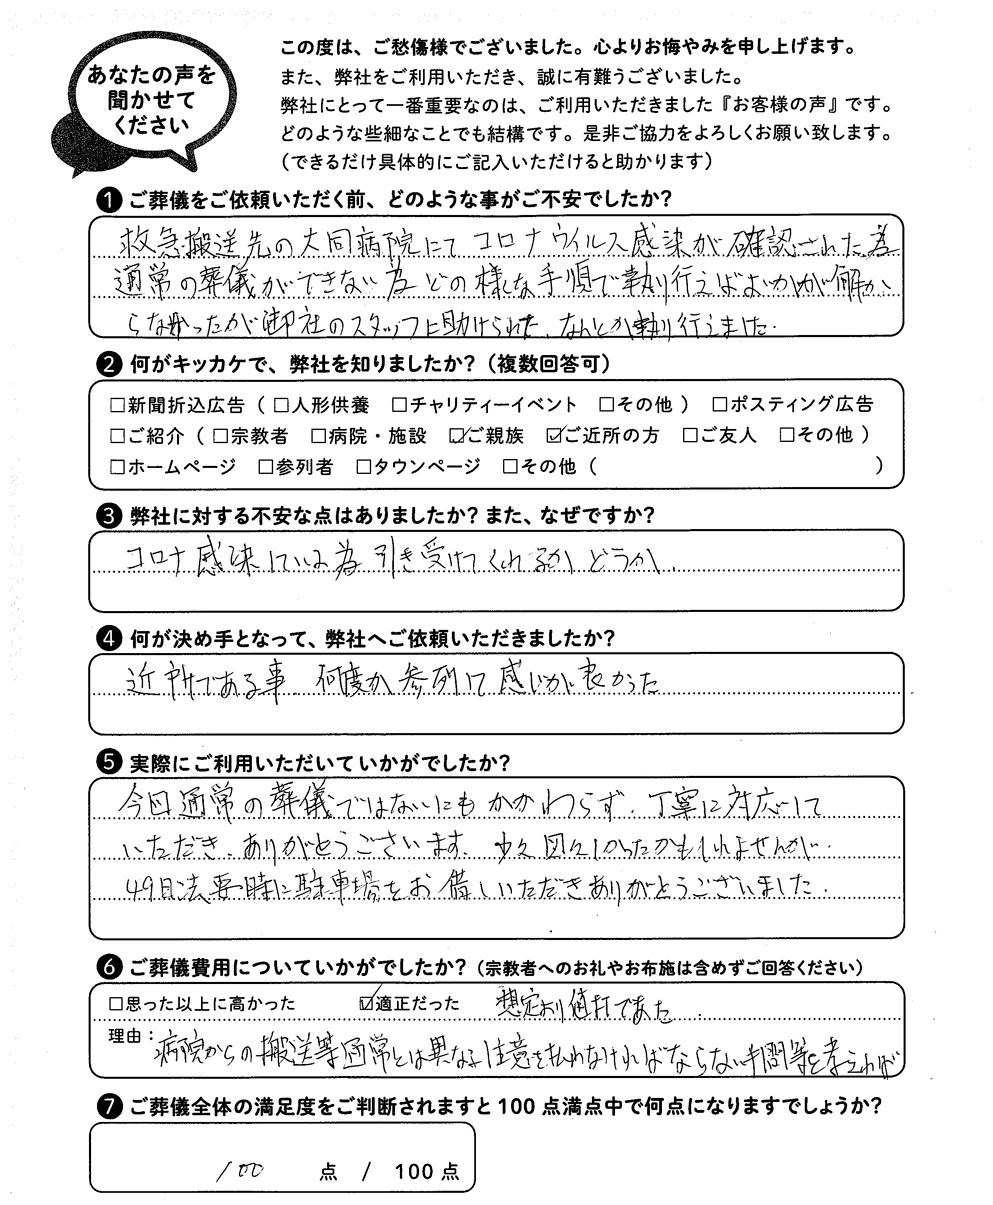 あなたの声を
聞かせて
ください
この度は、ご愁傷様でございました。心よりお悔やみを申し上げます。
また、弊社をご利用いただき、誠に有難うございました。
弊社にとって一番重要なのは、ご利用いただきました『お客様の声』です。
どのような些細なことでも結構です。是非ご協力をよろしくお願い致します。
（できるだけ具体的にご記入いただけると助かります）
❶ ご葬儀をご依頼いただく前、どのような事がご不安でしたか？
救急搬送先の大同病院にてコロナウイルス感染が確認された為
通常の葬儀ができない為どの様な手順で執り行えばよいかが解か
らなかったが御社のスタッフに助けられ、なんとか執り行えました.
❷ 何がキッカケで、弊社を知りましたか？（複数回答可）
□新聞折込広告（ □人形供養 □チャリティーイベント □その他 ） □ポスティング広告
□ご紹介（ □宗教者 □病院・施設 ☑ご親族 ☑ご近所の方 □ご友人 □その他 ）
□ホームページ □参列者 □タウンページ □その他（ ）
❸ 弊社に対する不安な点はありましたか？また、なぜですか？
コロナ感染している為 引き受けてくれるかどうか.
❹ 何が決め手となって、弊社へご依頼いただきましたか？
近所である事 何度か参列して感じが良かった
❺ 実際にご利用いただいていかがでしたか？
今回通常の葬儀ではないにもかかわらず、丁寧に対応して
いただき、ありがとうございます. 少々図々しかったかもしれませんが.
49日法要時に駐車場をお借しいただきありがとうございました.
❻ ご葬儀費用についていかがでしたか？（宗教者へのお礼やお布施は含めずご回答ください）
□思った以上に高かった ☑適正だった 想定より値打であった
理由： 病院からの搬送等通常とは異なる注意を払わなければならない手間等を考えれば
❼ ご葬儀全体の満足度をご判断されますと100点満点中で何点になりますでしょうか？
100 点 / 100点